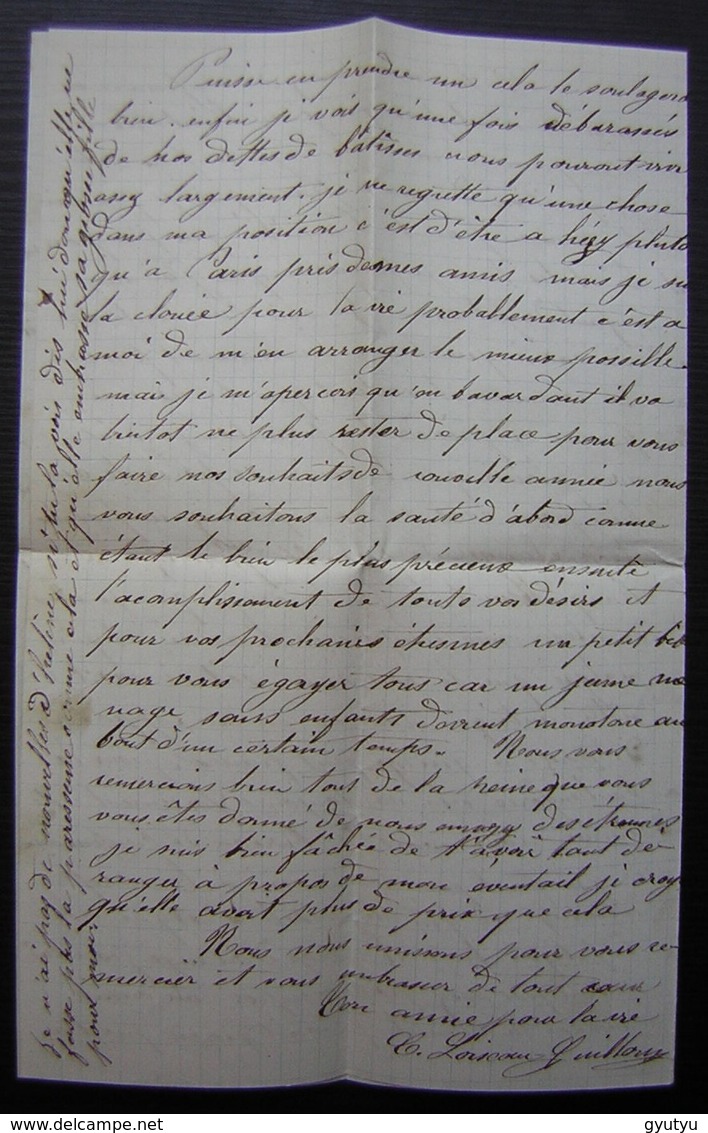 Puisse en prendre un cela le soulagera
bien. enfin je vois qu'une fois débarassés
de nos dettes de bâtisses nous pouront vivr
assez largement. je ne regrette qu'une chose
dans ma position c'est d'être a plutot
qu'a Paris près de mes amis mais je su
la clouée pour la vie probablement c'est a
moi de m'en arranger le mieux possible.
mais je m'aperçois qu'en bavardant il va
bientot ne plus rester de place pour vous
faire nos souhaits de nouvelle année nous
vous souhaitons la santé d'abord comme
étant le bien le plus précieux ensuite
l'acomplissement de touts vos désirs et
pour vos prochaines étrennes un petit bébé
pour vous égayer tous car un jeune mé
nage sans enfants devient monotone au
bout d'un certain temps. Nous vous
remercions bien tout de la peine que vous
vous êtes donné de nous des étrennes
je suis bien fâchée de t'avoir tant dé-
ranger à propos de mon eventail je croy
qu'elle avait plus de prix que cela
Nous nous unissons pour vous re-
mercier et vous embrasser de tout cœur
Ton amie pour la vie
C. Loiseau-Guillou
Je n'ai pas de nouvelles d' si tu la vois dis lui donc qu'elle ne
fasse plus la paresseuse comme cela et qu'elle embrasse sa fille
pour moi.
gyutyu